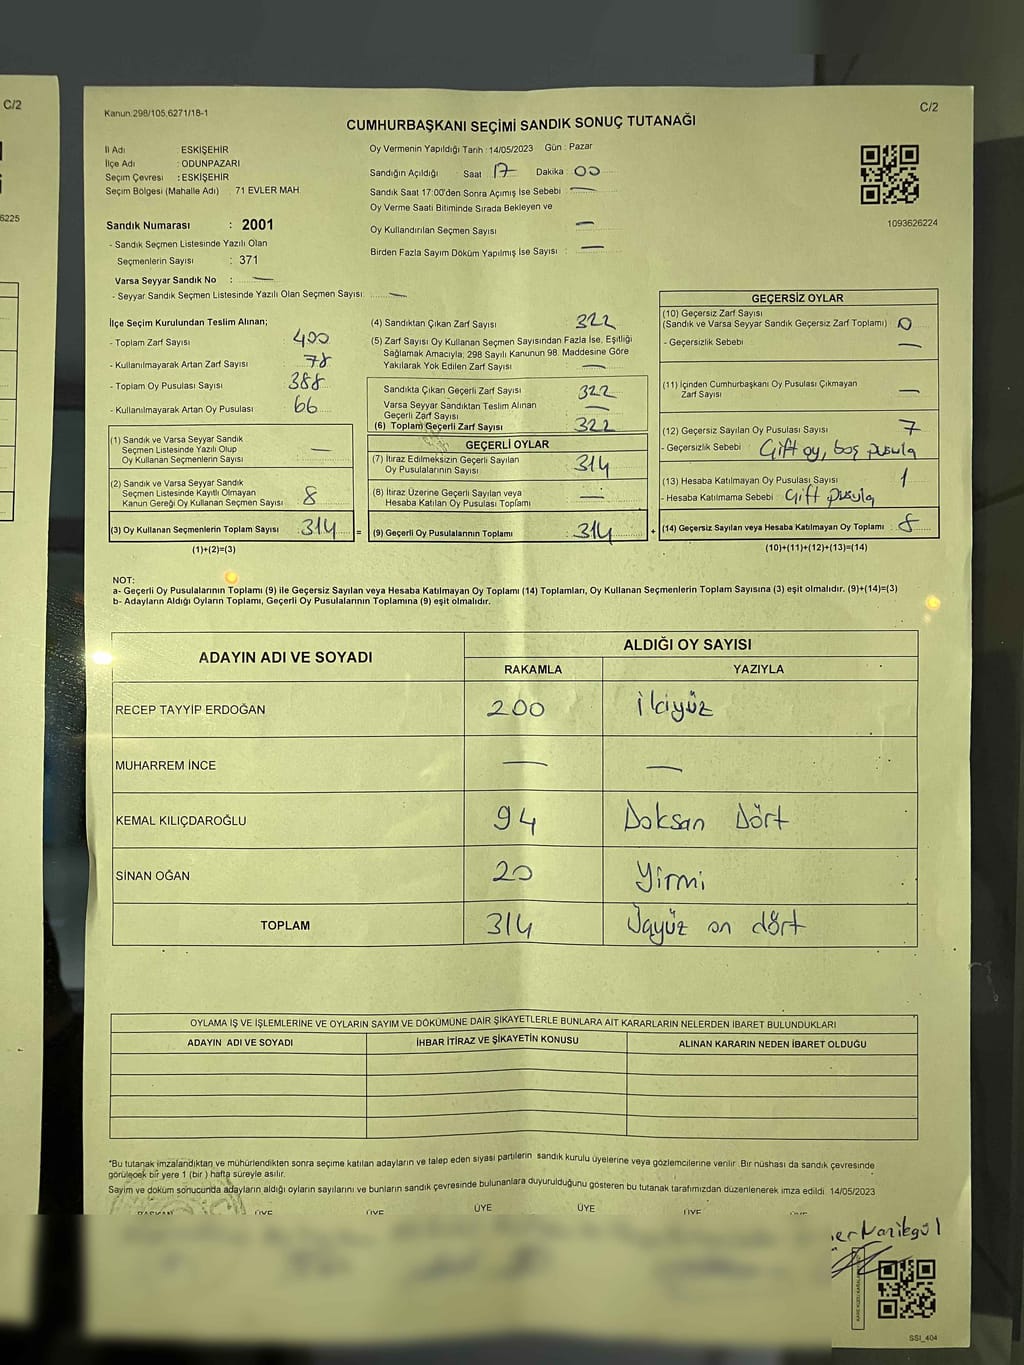 C/2
6225
Kanun:298/105;6271/18-1
C/2
CUMHURBAŞKANI SEÇİMİ SANDIK SONUÇ TUTANAĞI
İl Adı : ESKİŞEHİR
İlçe Adı : ODUNPAZARI
Seçim Çevresi : ESKİŞEHİR
Seçim Bölgesi (Mahalle Adı) 71 EVLER MAH.
Oy Vermenin Yapıldığı Tarih : 14/05/2023 Gün : Pazar
Sandığın Açıldığı Saat 17 Dakika : 00
Sandık Saat 17:00'den Sonra Açımış İse Sebebi —
Oy Verme Saati Bitiminde Sırada Bekleyen ve
Oy Kullandırılan Seçmen Sayısı —
Birden Fazla Sayım Döküm Yapılmış İse Sayısı : —
1093626224
Sandık Numarası : 2001
- Sandık Seçmen Listesinde Yazılı Olan
Seçmenlerin Sayısı : 371
Varsa Seyyar Sandık No : —
- Seyyar Sandık Seçmen Listesinde Yazılı Olan Seçmen Sayısı: —
İlçe Seçim Kurulundan Teslim Alınan;
- Toplam Zarf Sayısı 400
- Kullanılmayarak Artan Zarf Sayısı 78
- Toplam Oy Pusulası Sayısı 388
- Kullanılmayarak Artan Oy Pusulası 66
(1) Sandık ve Varsa Seyyar Sandık
Seçmen Listesinde Yazılı Olup
Oy Kullanan Seçmenlerin Sayısı —
(2) Sandık ve Varsa Seyyar Sandık
Seçmen Listesinde Kayıtlı Olmayan
Kanun Gereği Oy Kullanan Seçmen Sayısı 8
(3) Oy Kullanan Seçmenlerin Toplam Sayısı : 314 =
(1)+(2)=(3)
(4) Sandıktan Çıkan Zarf Sayısı 322
(5) Zarf Sayısı Oy Kullanan Seçmen Sayısından Fazla İse, Eşitliği
Sağlamak Amacıyla; 298 Sayılı Kanunun 98. Maddesine Göre
Yakılarak Yok Edilen Zarf Sayısı —
Sandıkta Çıkan Geçerli Zarf Sayısı 322
Varsa Seyyar Sandıktan Teslim Alınan
Geçerli Zarf Sayısı —
(6) Toplam Geçerli Zarf Sayısı 322
GEÇERLİ OYLAR
(7) İtiraz Edilmeksizin Geçerli Sayılan
Oy Pusulalarının Sayısı 314
(8) İtiraz Üzerine Geçerli Sayılan veya
Hesaba Katılan Oy Pusulası Toplamı —
(9) Geçerli Oy Pusulalarının Toplamı : 314 +
GEÇERSİZ OYLAR
(10) Geçersiz Zarf Sayısı
(Sandık ve Varsa Seyyar Sandık Geçersiz Zarf Toplamı) 0
- Geçersizlik Sebebi —
(11) İçinden Cumhurbaşkanı Oy Pusulası Çıkmayan
Zarf Sayısı —
(12) Geçersiz Sayılan Oy Pusulası Sayısı 7
- Geçersizlik Sebebi : Çift oy, boş pusula
(13) Hesaba Katılmayan Oy Pusulası Sayısı 1
- Hesaba Katılmama Sebebi : Çift pusula
(14) Geçersiz Sayılan veya Hesaba Katılmayan Oy Toplamı : 8
(10)+(11)+(12)+(13)=(14)
NOT:
a- Geçerli Oy Pusulalarının Toplamı (9) ile Geçersiz Sayılan veya Hesaba Katılmayan Oy Toplamı (14) Toplamları, Oy Kullanan Seçmenlerin Toplam Sayısına (3) eşit olmalıdır. (9)+(14)=(3)
b- Adayların Aldığı Oyların Toplamı, Geçerli Oy Pusulalarının Toplamına (9) eşit olmalıdır.
ADAYIN ADI VE SOYADI ALDIĞI OY SAYISI
RAKAMLA YAZIYLA
RECEP TAYYİP ERDOĞAN 200 İkiyüz
MUHARREM İNCE — —
KEMAL KILIÇDAROĞLU 94 Doksan Dört
SİNAN OĞAN 20 Yirmi
TOPLAM 314 Üçyüz on dört
OYLAMA İŞ VE İŞLEMLERİNE VE OYLARIN SAYIM VE DÖKÜMÜNE DAİR ŞİKAYETLERLE BUNLARA AİT KARARLARIN NELERDEN İBARET BULUNDUKLARI
ADAYIN ADI VE SOYADI İHBAR İTİRAZ VE ŞİKAYETİN KONUSU ALINAN KARARIN NEDEN İBARET OLDUĞU
*Bu tutanak imzalandıktan ve mühürlendikten sonra seçime katılan adayların ve talep eden siyasi partilerin sandık kurulu üyelerine veya gözlemcilerine verilir. Bir nüshası da sandık çevresinde
görülecek bir yere 1 (bir) hafta süreyle asılır.
Sayım ve döküm sonucunda adayların aldığı oyların sayılarını ve bunların sandık çevresinde bulunanlara duyurulduğunu gösteren bu tutanak tarafımızdan düzenlenerek imza edildi. 14/05/2023
BAŞKAN ÜYE ÜYE ÜYE ÜYE ÜYE
SSI_404